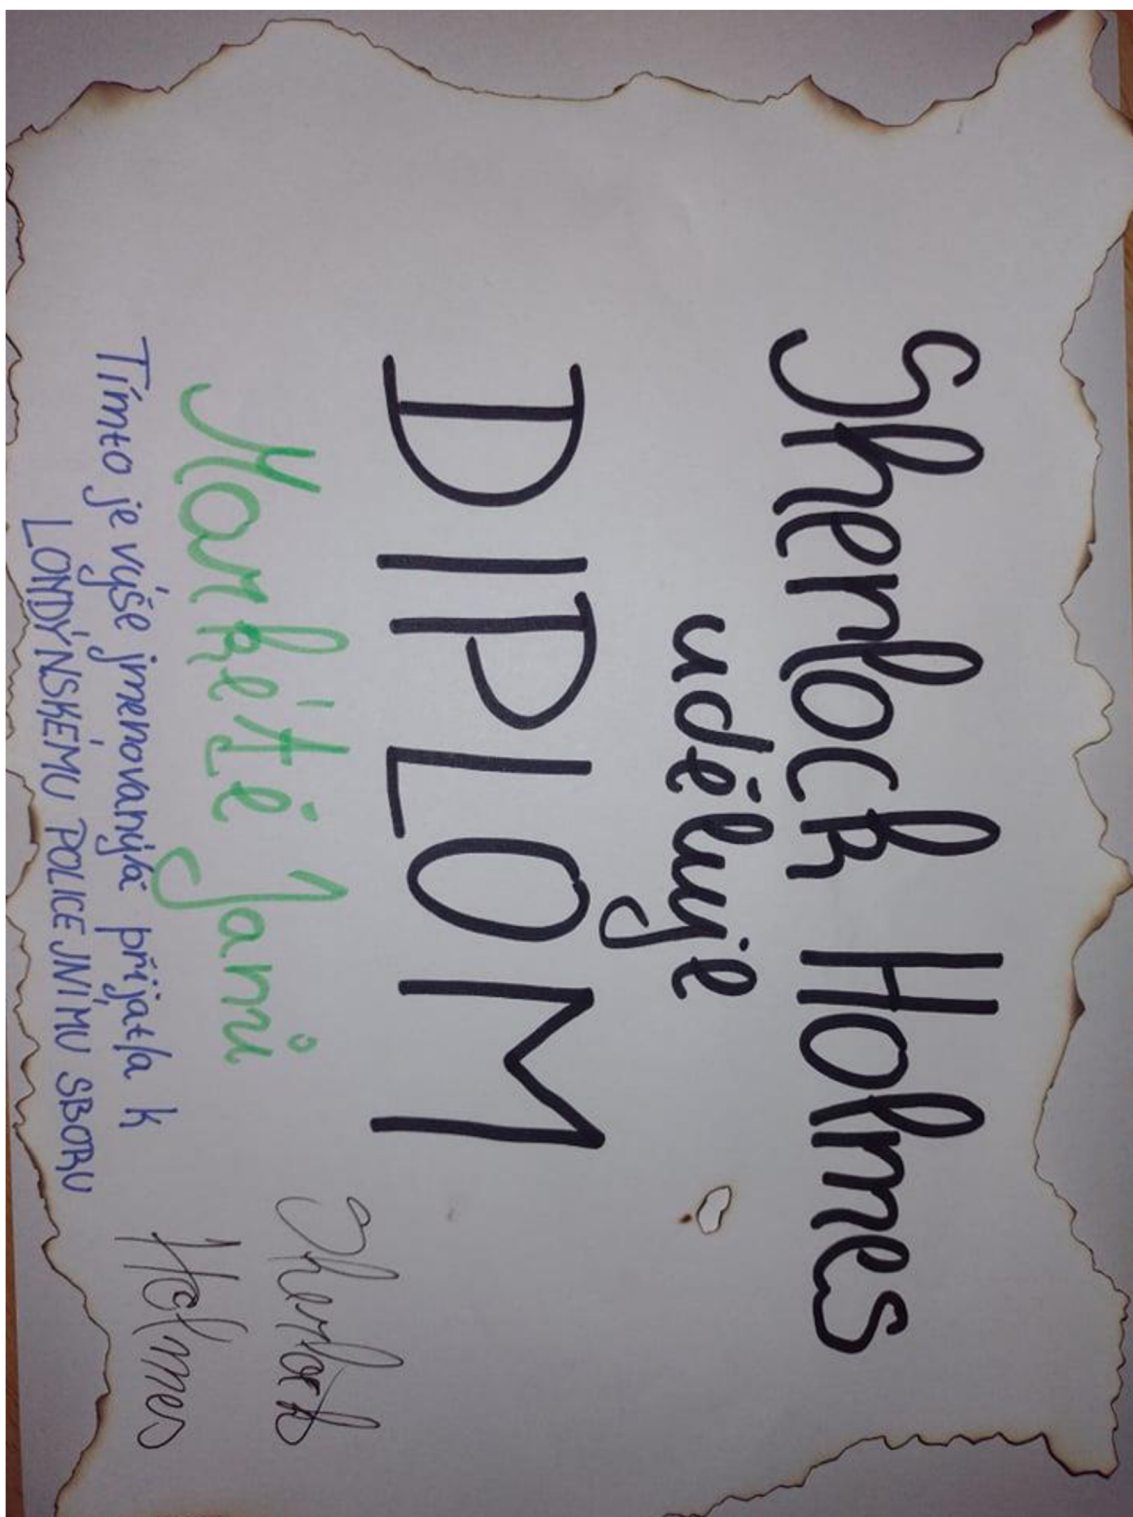 Sherlock Holmes
uděluje
DIPLOM
Markétě Jani
Tímto je výše jmenovaný/á přijat/a k
LONDÝNSKÉMU POLICEJNÍMU SBORU
Sherlock
Holmes